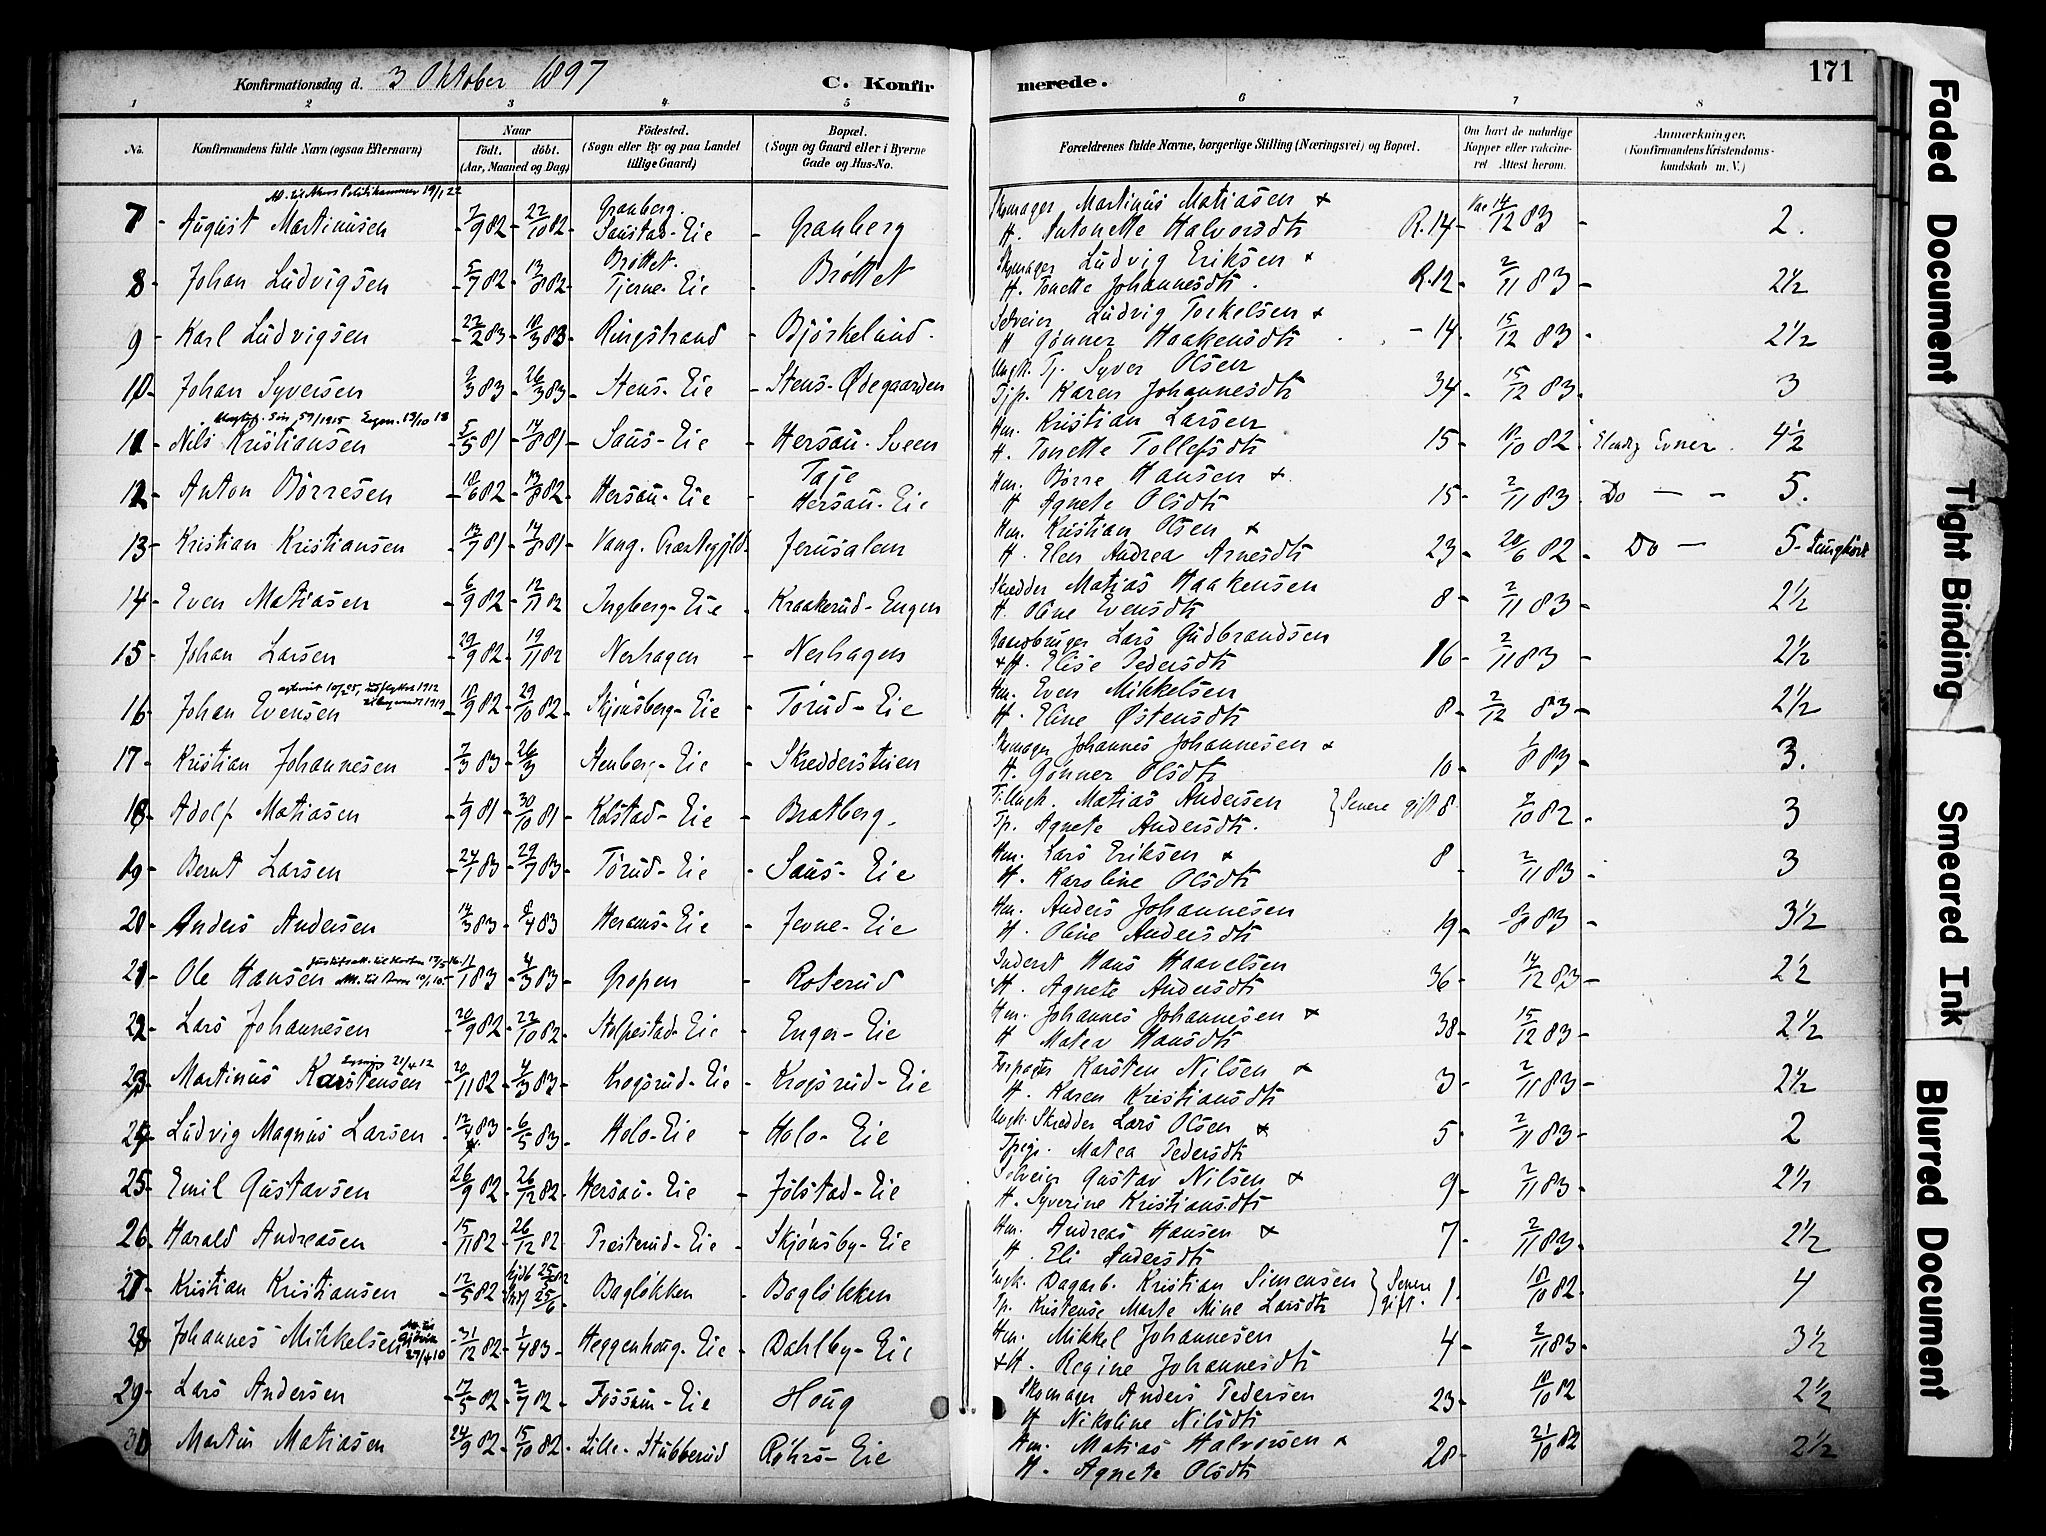 Konfirmationsdag d. 3 Oktober 1897 C. Konfirmerede. 171
1 2 3 4 5 6 7 8
No. Konfirmandens fulde Navn (ogsaa Efternavn) Naar Födt. döbt. (Aar, Maaned og Dag) Födested. (Sogn eller By og paa Landet tillige Gaard) Bopæl. (Sogn og Gaard eller i Byerne Gade og Hus-No. Forældrenes fulde Navne, borgerlige Stilling (Næringsvei) og Bopæl. Om havt de naturlige Kopper eller vakcineret Attest herom. Anmærkninger. (Konfirmandens Kristendomskundskab m. V.)
7 August Martinusen 7/9 82 22/10 82 Granberg. Saustad-Eie Granberg Skomager Martinus Matiasen & H. Antonette Halvorsdtr R.14 Vac 14/12 83 2.
8 Johan Ludvigsen 5/7 82 13/8 82 Bröttet. Tjerne-Eie Bröttet Skomager Ludvig Eriksen & H. Tonette Johannesdtr. R.12 2/11 83 2½
9 Karl Ludvigsen 22/2 83 18/3 83 Ringstrand Björkelund. Selveier Ludvig Torkelsen & H Gönner Haakensdtr 14 15/12 83 2½
10 Johan Syversen 2/3 83 26/3 83 Stens-Eie Stens-Ødegaarden Ungk. Tj. Syver Olsen Tjp. Karen Johannesdtr 34 15/12 83 3
11 Nils Kristiansen 5/5 81 14/8 81 Saus-Eie Hersau-Sveen Hm. Kristian Larsen H. Tonette Tollefsdtr 15 18/10 82 Elendig Evner 4½
12 Anton Börresen 18/6 82 13/8 82 Hersau-Eie Hersau-Eie Hm. Börre Hansen & H Agnete Olsdtr 15 2/11 83 Do 5.
13 Kristian Kristiansen 13/7 81 14/8 81 Vang. Præstegjld. Jerusalem Hm. Kristian Olsen & H. Elen Andrea Arnesdtr 23 20/6 82 Do 5- Tunghört
14 Even Matiasen 6/9 82 12/11 82 Ingberg-Eie Kraakerud-Engen Skrædder Matias Haakensen H. Oline Evensdtr 8 2/11 83 2½
15 Johan Larsen 29/9 82 19/11 82 Nerhagen Nerhagen Gaardbruger Lars Gudbrandsen & H. Elise Pedersdtr 16 2/11 83 2½
16 Johan Evensen 18/9 82 29/10 82 Skjönsberg-Eie Törud-Eie Hm. Even Mikkelsen H. Eline Østensdtr 8 2/12 83 2½
17 Kristian Johannesen 2/3 83 26/3 Stenberg-Eie Skredderstuen Skomager Johannes Johannesen & H. Gönner Olsdtr 10 1/8 83 3.
18 Adolf Matiasen 1/9 81 30/10 81 Kolstad-Eie Bratberg. Ungk. Matias Andersen Tp. Agnete Andersdtr. } Senere gift 8 2/10 82 3
19 Bernt Larsen 24/7 83 29/7 83 Törud-Eie Saus-Eie Hm. Lars Eriksen & H. Karoline Olsdtr 8 2/11 83 3
20 Anders Andersen 14/3 83 8/4 83 Herams-Eie Jevne-Eie Hm. Anders Johannesen H. Oline Andersdtr 19 8/8 83 3½
21 Ole Hansen 11/1 83 4/3 83 Gropen Roterud Inderst Hans Haavelsen & H. Agnete Andersdtr 36 14/12 83 2½
22 Lars Johannesen 20/9 82 22/10 82 Stolpestad-Eie Enger-Eie Hm. Johannes Johannesen & H Mater Hansdtr 38 15/12 83 2½
23 Martinus Karstensen 20/11 82 4/3 83 Krogsrud-Eie Krogsrud-Eie Forpagter Karsten Nilsen & H. Karen Kristiansdtr 3 2/11 83 2½
24 Ludvig Magnus Larsen 12/4 83 6/5 83 Holo-Eie Holo-Eie Ungk. Skredder Lars Olsen & Tpige. Matea Pedersdtr 5 2/11 83 2
25 Emil Gustavsen 26/9 82 26/12 82 Hersau-Eie Jölstad-Eie Selveier Gustav Nilsen & H. Syverine Kristiansdtr 9 2/11 83 2½
26 Harald Andreasen 15/11 82 26/12 82 Presterud-Eie Skjönsby-Eie Hm. Andreas Hansen & H. Eli Andersdtr 7 2/11 83 2½
27 Kristian Kristiansen 12/5 82 25/6 Baglökken Baglökken Ungk. Dagarb. Kristian Simensen Tp. Kristense Marte Mine Larsdtr } Senere gift. 1 18/10 82 4
28 Johannes Mikkelsen 31/12 82 1/4 83 Heggenhoug-Eie Dahlby-Eie Hm. Mikkel Johannesen & H. Regine Johannesdtr 4 2/11 83 3½
29 Lars Andersen 17/5 82 2/7 82 Fossum-Eie Houg Skomager Anders Pedersen H Nikoline Nilsdtr 23 18/10 82 2½
30 Martin Matiasen 24/9 82 15/10 82 Lille-Stubberud Röhrs-Eie Hm. Matias Halvorsen & H. Agnete Olsdtr 28 21/10 82 2½
Faded Document
Tight Binding
Smeared Ink
Blurred Document